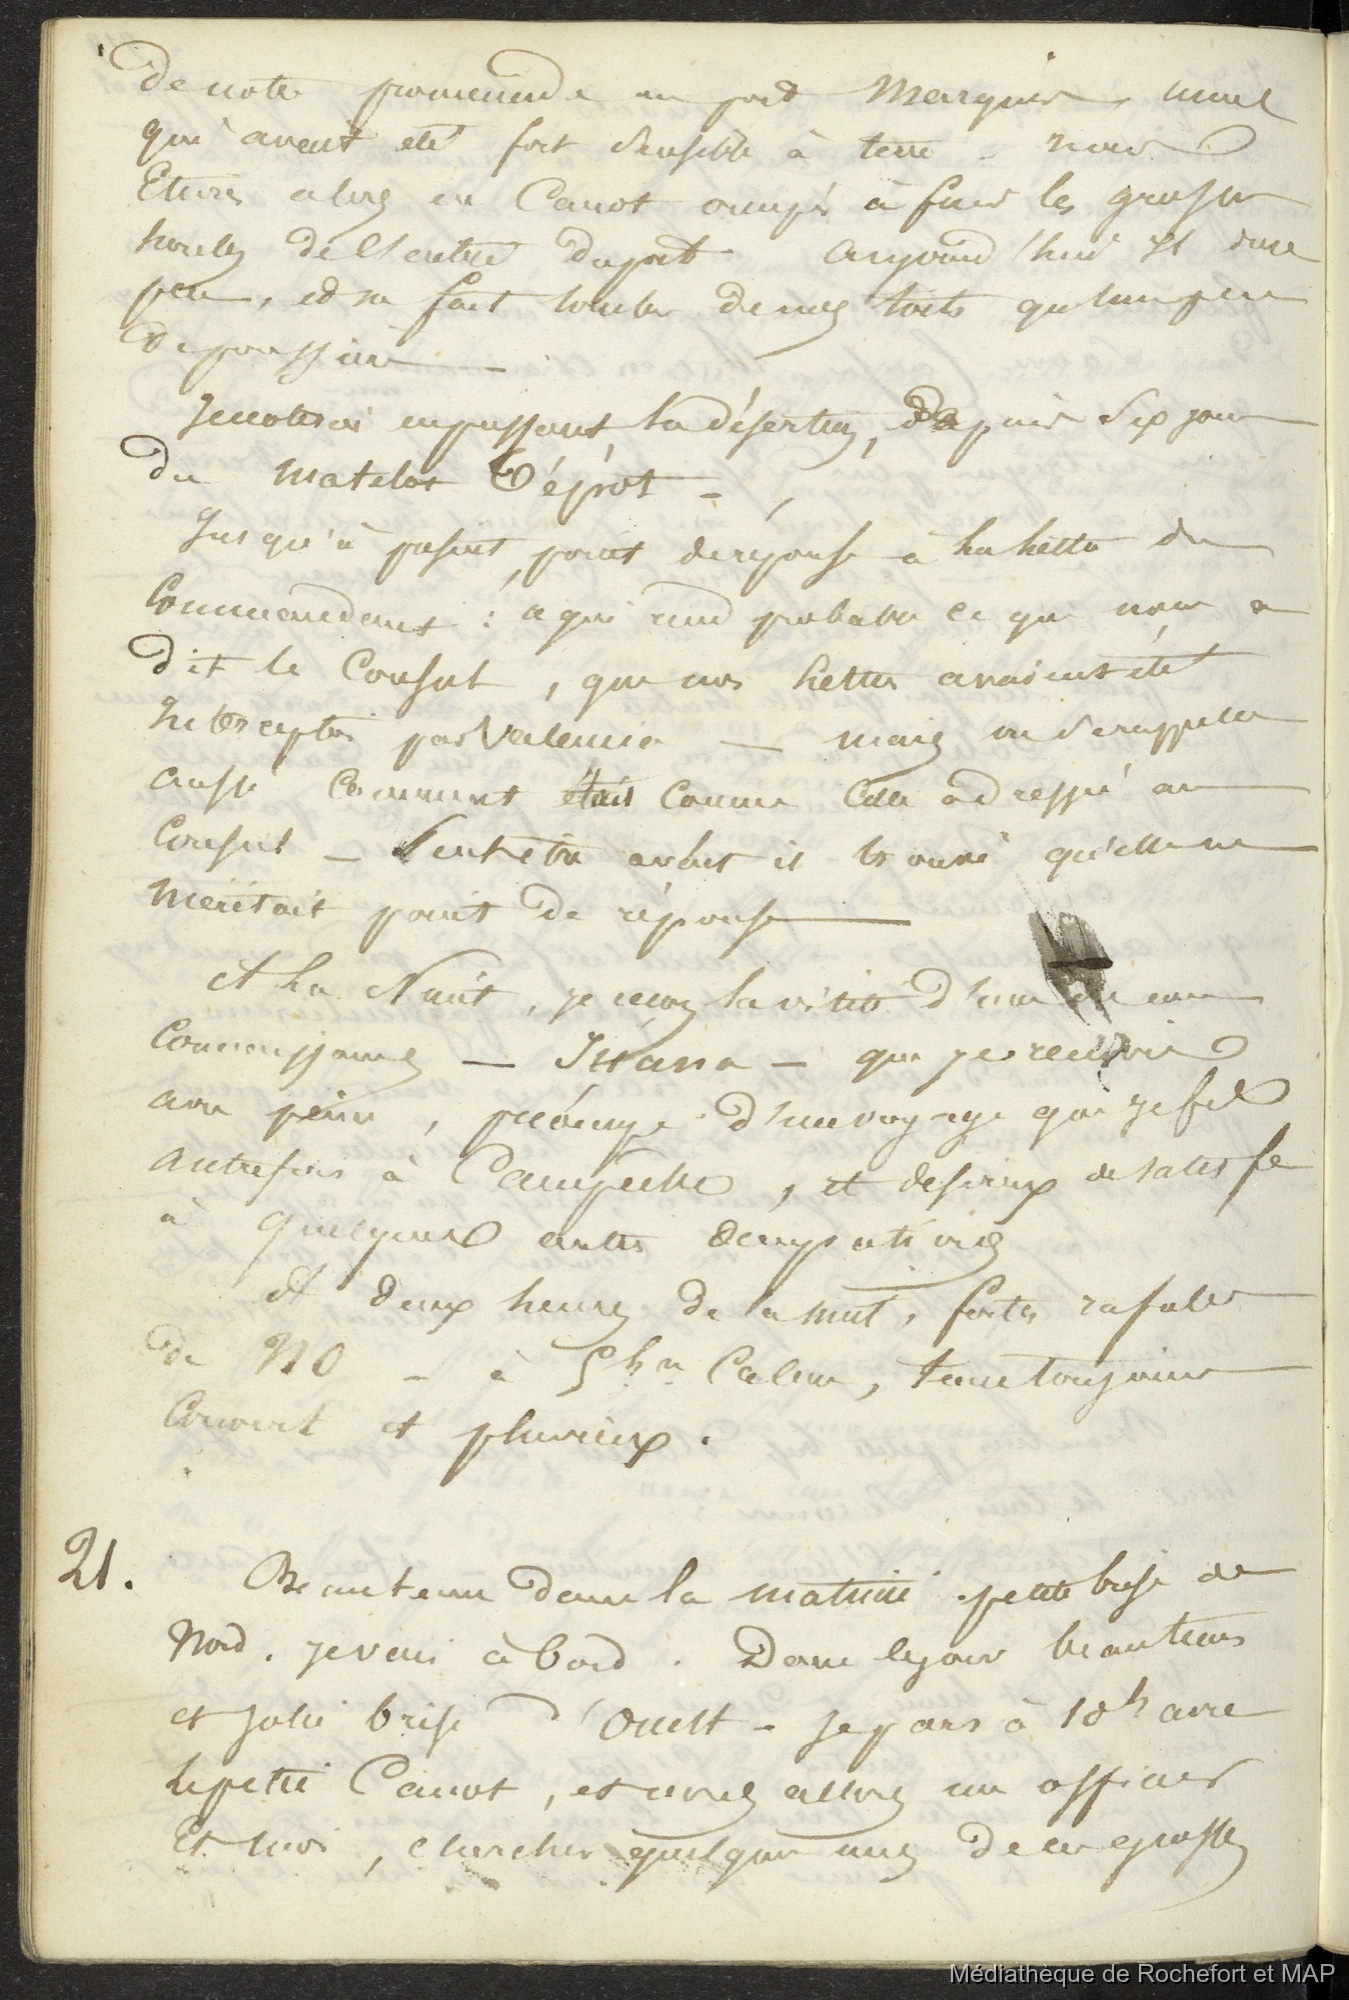 de notre promenade au port Marquis, mais
qui avait été fort sensible à terre _ nous
étions alors en Canot occupés à fuir les grosses
houles de l'entrée du port. aujourd'hui il dure
peu, et ne fait tomber de nos toits qu'un peu
de poussière _
Je noterai en passant, la désertion, depuis six jours
du matelot Dépôt _
Jusqu'à présent, point de réponse à la lettre du
Commandant : ce qui rend probable ce que nous a
dit le Consul, que nos lettres avaient été
interceptées par Valencia _ mais on se rappelle
aussi comment était conçue celle adressée au
Consul _ Peut être aubut il trouvé qu'elle ne
méritait point de réponse _
A la Nuit, je reçois la visite d'une de mes
Connaissances _ Juana _ que je reçois
avec peine, préoccupé d'un voyage que je fis
autrefois à Campêche, et désireux de satisfe
à quelques autres occupations
A deux heures de la nuit, fortes rafales
de NO _ à 5h Calme, tems toujours
Couvert et pluvieux.
21. Beau tems dans la matinée petite brise de
Nord. je vais à bord. Dans le jour beau tems
et jolie brise d'Ouest _ Je pars à 10h avec
le petit Canot, et nous allons un officier
et moi, chercher quelques unes de ces grosses
Médiathèque de Rochefort et MAP